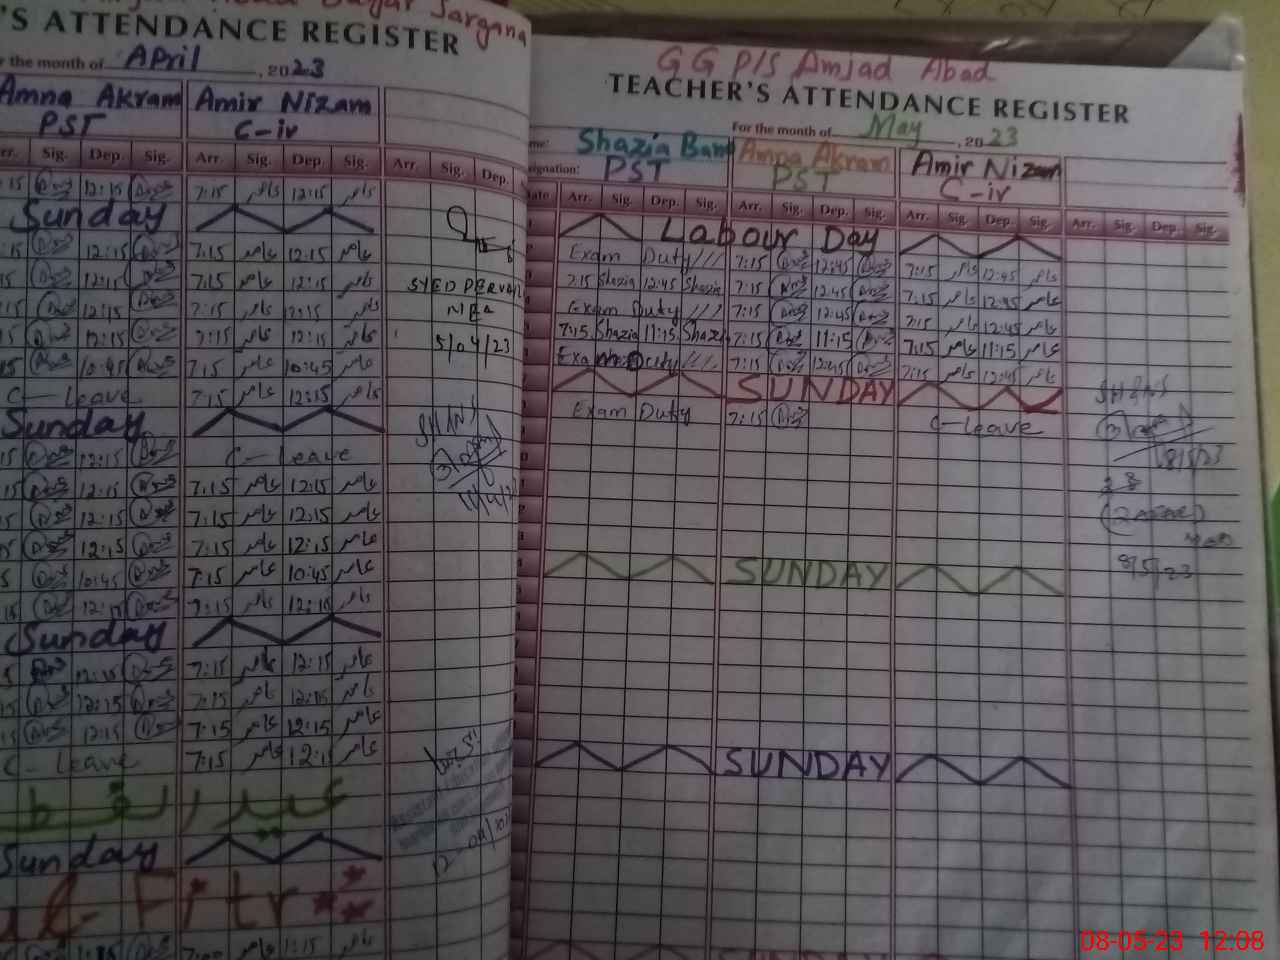 Sargana
'S ATTENDANCE REGISTER
r the month of April , 2023
Amna Akram Amir Nizam
PST C-iv
rr. Sig. Dep. Sig. Arr. Sig. Dep. Sig. Arr. Sig. Dep.
:15 12:15 7:15 عامر 12:15 عامر
Sunday
:15 12:15 7:15 عامر 12:15 عامر
15 12:15 7:15 عامر 12:15 عامر
SYED PERVAIZ
:15 12:15 7:15 عامر 12:15 عامر
MEA
15 12:15 7:15 عامر 12:15 عامر
5/04/23
15 10:45 7:15 عامر 10:45 عامر
C-Leave 7:15 عامر 12:15 عامر
Sunday
15 12:15 C-Leave
15 12:15 7:15 عامر 12:15 عامر
15 12:15 7:15 عامر 12:15 عامر
15 12:15 7:15 عامر 12:15 عامر
5 10:45 7:15 عامر 10:45 عامر
15 12:15 7:15 عامر 12:15 عامر
Sunday
5 12:15 7:15 عامر 12:15 عامر
15 12:15 7:15 عامر 12:15 عامر
15 12:15 7:15 عامر 12:15 عامر
C-Leave 7:15 عامر 12:15 عامر
عید الفطر
Sunday
ul-Fitr
عامر 1:15 عامر
GGP/S Amjad Abad
TEACHER'S ATTENDANCE REGISTER
For the month of May , 2023
me: Shazia Bano Amna Akram Amir Nizam
signation: PST PST C-iv
Date Arr. Sig. Dep. Sig. Arr. Sig. Dep. Sig. Arr. Sig. Dep. Sig. Arr. Sig. Dep. Sig.
Labour Day
Exam Duty 7:15 12:45 7:15 عامر 12:45 عامر
7:15 Shazia 12:45 Shazia 7:15 12:45 7:15 عامر 12:45 عامر
Exam Duty 7:15 12:45 7:15 عامر 12:45 عامر
7:15 Shazia 11:15 Shazia 7:15 11:15 7:15 عامر 11:15 عامر
Exam Duty 7:15 12:45 7:15 عامر 12:45 عامر
SUNDAY
Exam Duty 7:15 C-Leave
8/5/23
8/5/23
SUNDAY
SUNDAY
08-05-23 12:08